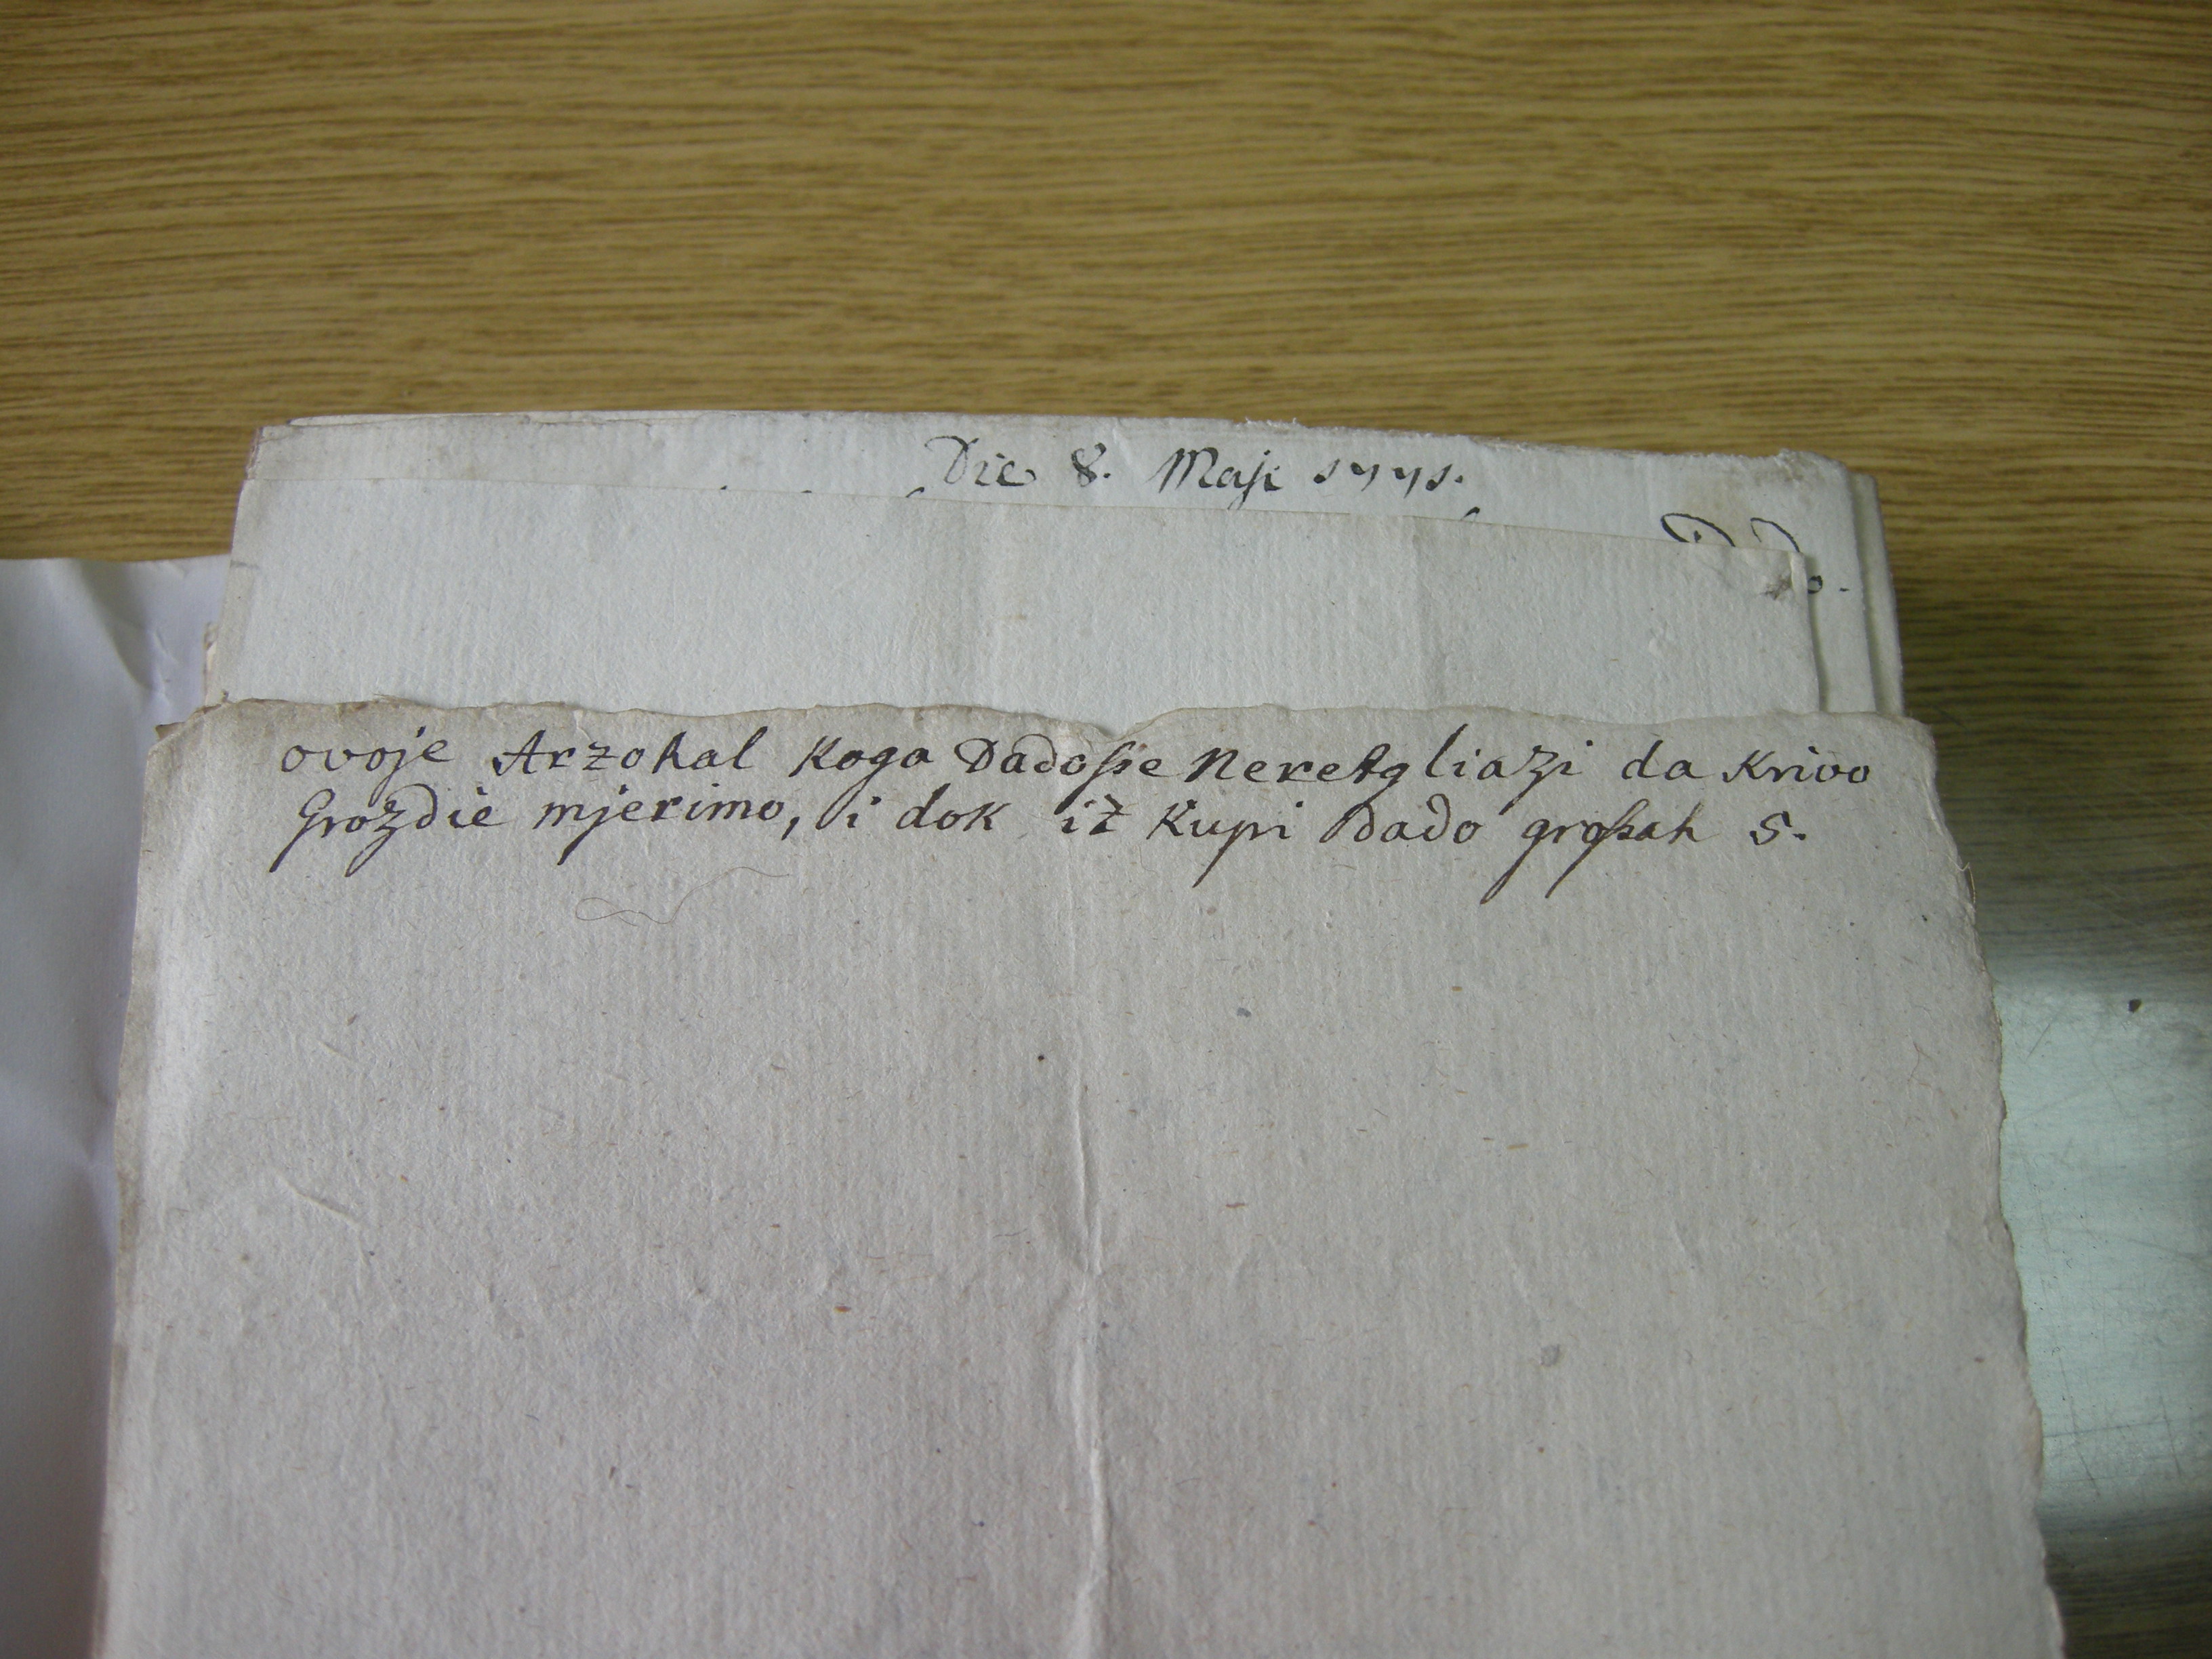 Die 8. Maji 1771.
ovoje Arzohal koga Dadosse Neretgliazi da Krivo
Grozdie mjerimo, i dok iz kupi dado grossah 5.